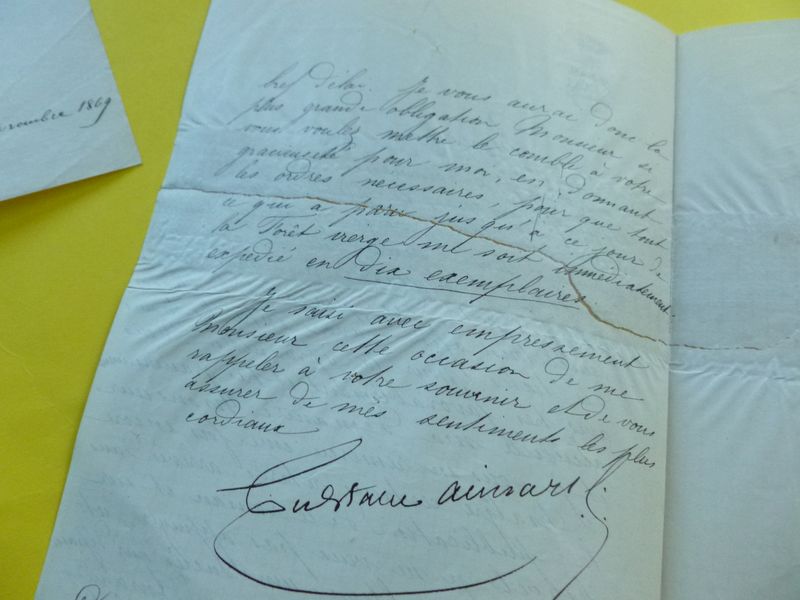 novembre 1869
bref délai. Je vous aurai donc la
plus grande obligation Monsieur si
vous voulez mettre le comble à votre
gracieuseté pour moi, en donnant
les ordres nécessaires, pour que tout
ce qui a paru jusqu'à ce jour de
la Forêt vierge me soit immédiatement
expédié en dix exemplaires.
Je saisi avec empressement
Monsieur cette occasion de me
rappeler à votre souvenir et de vous
assurer de mes sentiments les plus
cordiaux
Gustave Aimard